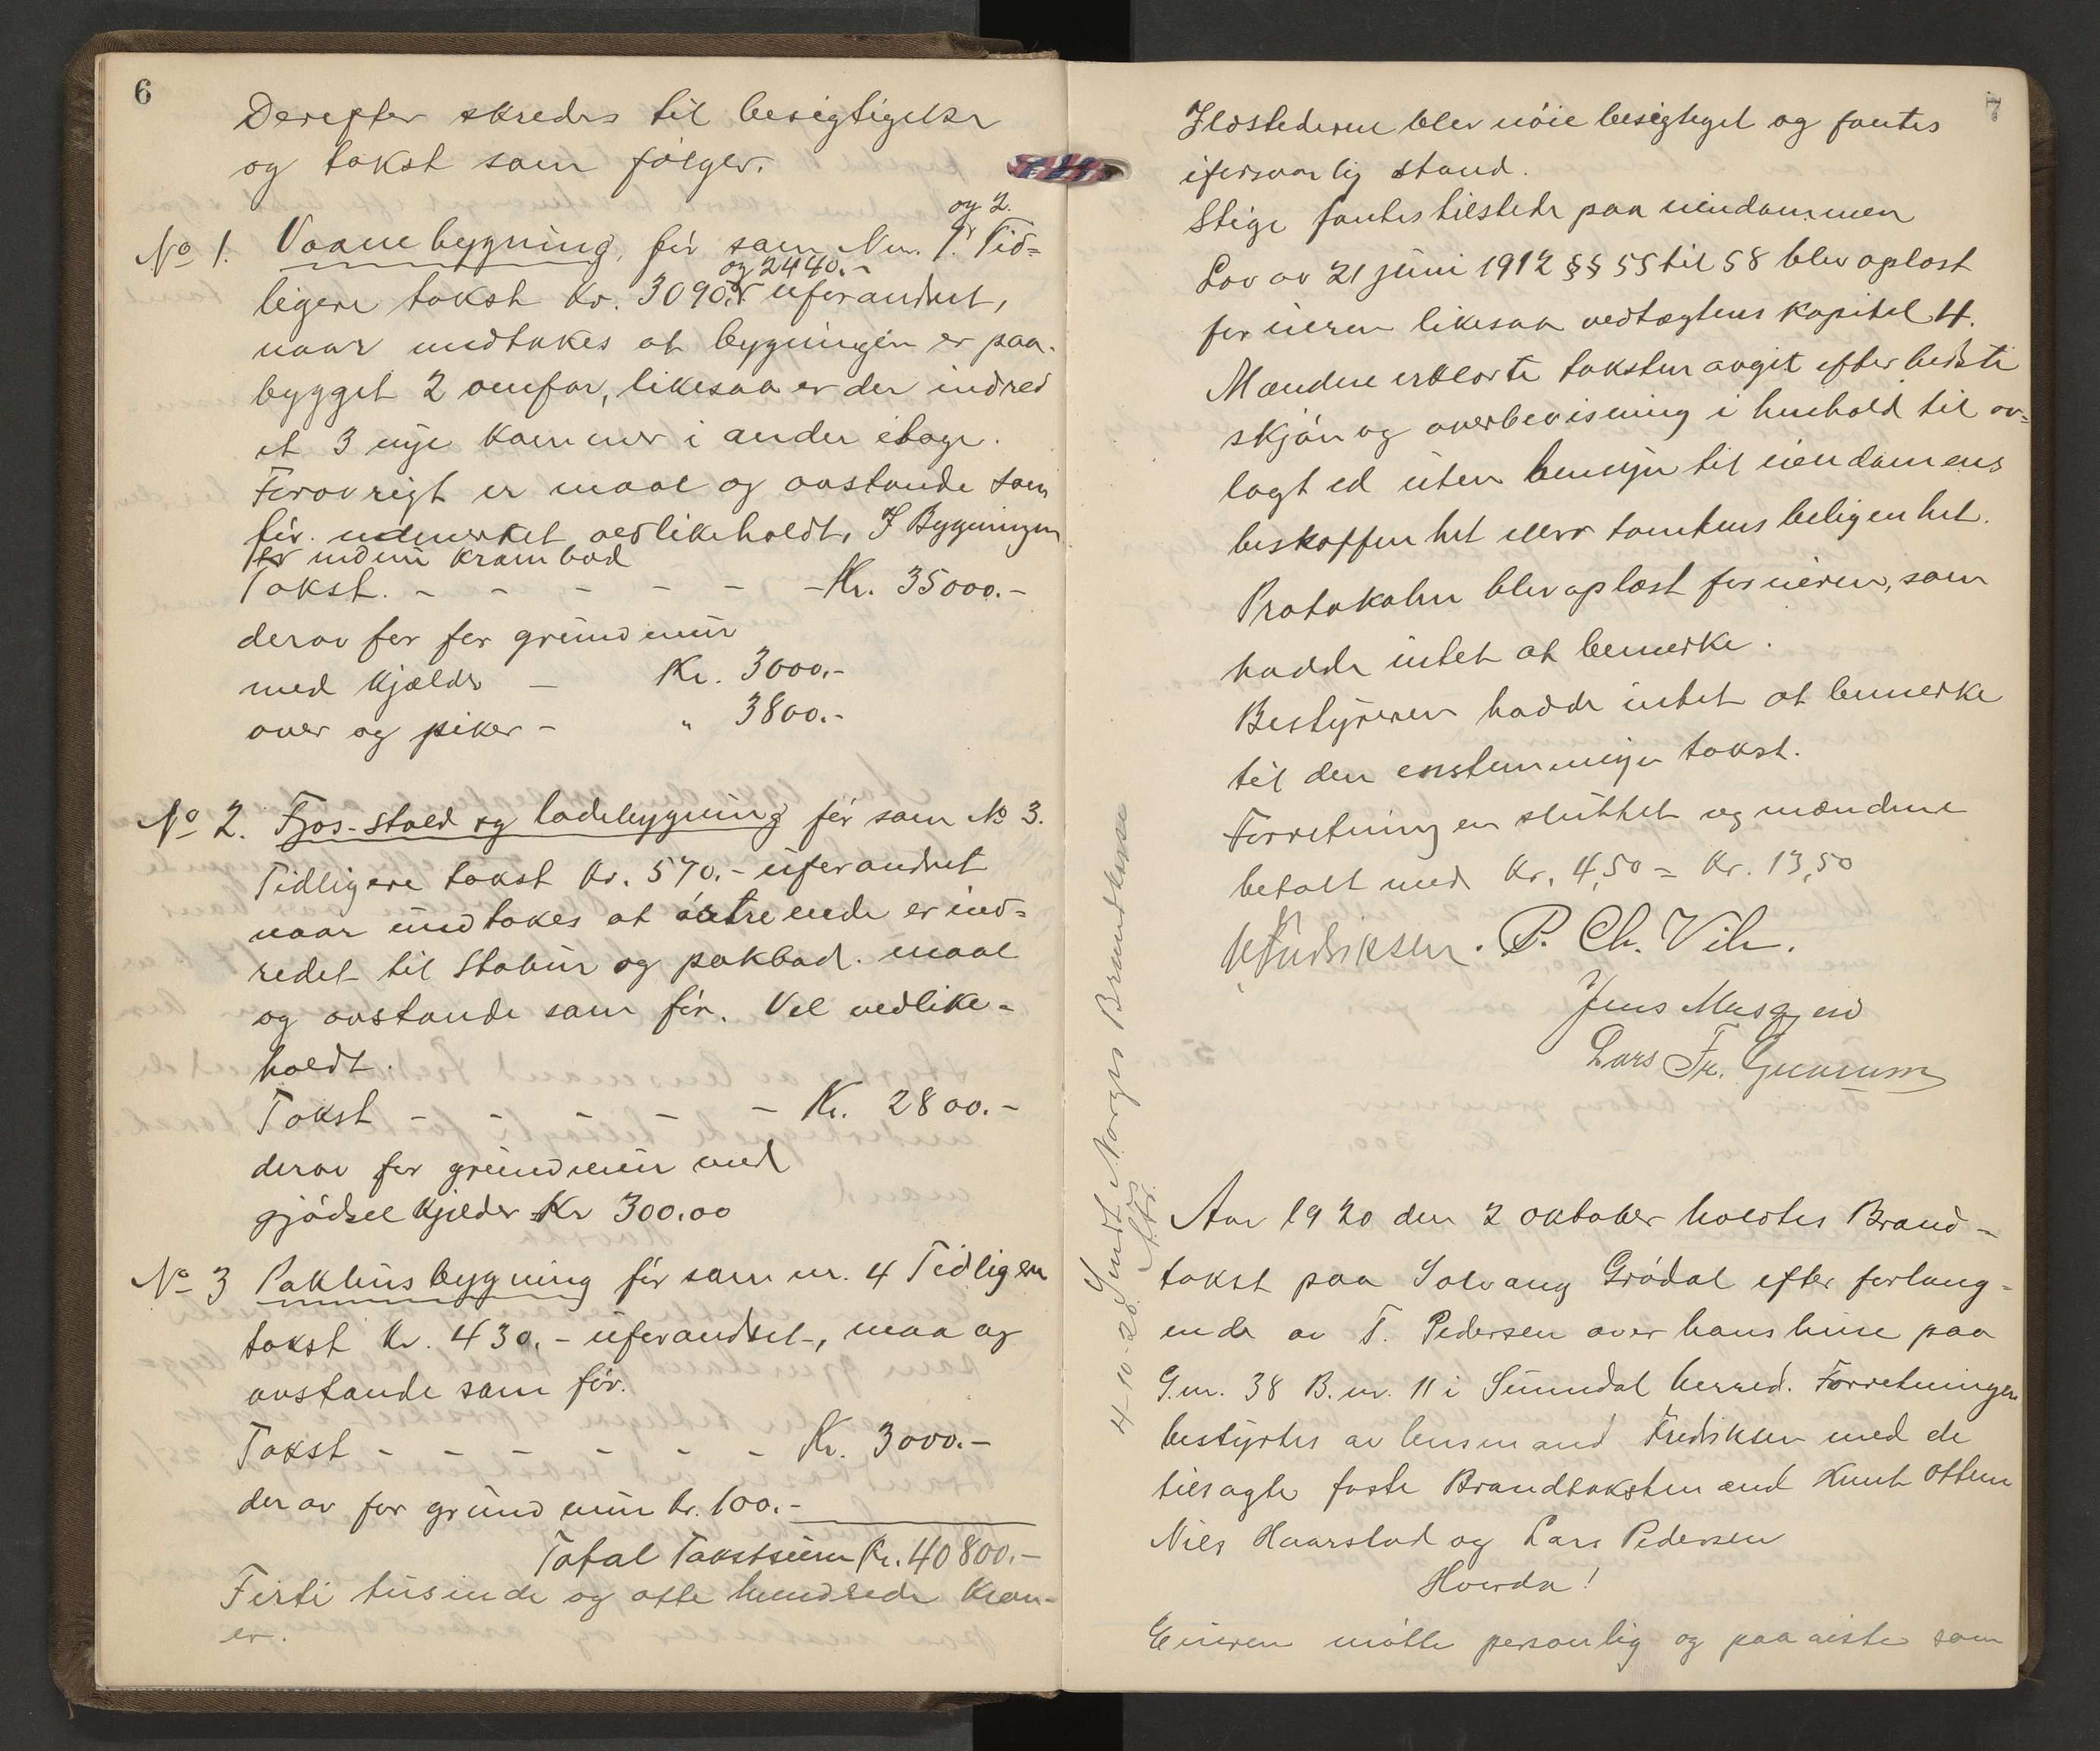 6
Derefter skredes til besigtigelse
og takst som følger.
og 2.
No 1. Vaanebygning, før som Nr. 1. Tid=
og 2440.-
ligere takst Kr. 3090.- uforandret,
naar undtakes at bygningen er paa-
bygget 2 omfar, likesaa er der indred
et 3 nye kammer i anden etage.
Forøvrigt er maal og avstande som
før. udmerket vedlikeholdt. I Bygningen
er
Takst. - - - - - - Kr. 35000.-
derav for for grundmur
med kjælder - Kr. 3000.-
over og piker - " 3800.-
No 2. Fjos-stald og ladebygning før som No 3.
Tidligere takst Kr. 570.- uforandret
naar undtakes at østre ende er ind=
redet til Stabur og pakbod. maal
og avstande som før. Vel vedlike=
holdt.
Takst - - - - - Kr. 2800.-
derav for grundmur med
gjødsel kjælder Kr 300.00
No 3 Pakhusbygning før som nr. 4 Tidligere
takst Kr. 430.- uforandret-, maa og
avstande som før.
Takst - - - - - - Kr. 3000.-
derav for grundmur kr. 100.-
Total Takstsum Kr. 40800.-
Firti tusinde og otte hundrede Kron-
er.
7
Ildstederne blev nöie besigtiget og fantes
iforsvarlig stand.
Stige fantes tilstede paa eiendommen
Lov av 21 juni 1912 §§ 55 til 58 blev oplæst
for eieren likesaa vedtægtens kapitel 4.
Mændene erklærte taksten avgit efter bedste
skjön og overbevisning i henhold til av=
lagt ed uten hensyn til eiendomens
beskaffenhet eller tomtens beligenhet.
Protokolen blev oplæst for eieren, som
hadde intet at bemerke.
Bestyreren hadde intet at bemerke
til den enstemmige takst.
Forretningen sluttet og mændene
betalt med Kr. 4,50 = Kr. 13,50
Fredriksen. P. Ch. Vik.
Jens
Lars Fr.
4-10-20. Sendt Norges Brandkasse
Aar 1920 den 2 oktober holdtes Brand-
takst paa Solvang Grødal efter forlang=
ende av T. Pedersen over hans huse paa
G.nr. 38 B.nr. 11 i Sunndal herred. Forretningen
bestyrtes av lensmand Fredriksen med de
tilsagte faste Brandtakstmænd Knut Ottem
Nils Haarstad og Lars Pedersen
Hoverda!
Eieren mötte personlig og paaviste som